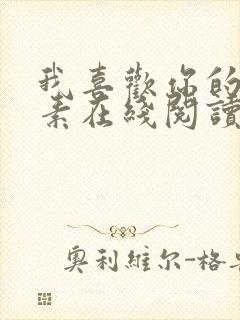 我喜歡你的
素在綫閱讀
奧利維尔-格